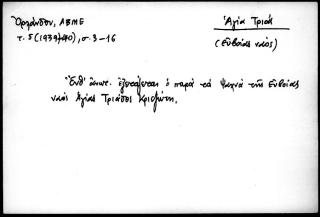 Ὀρλάνδον, ΑΒΜΕ
τ. 5 (1939/40), σ. 3-16
Ἁγία Τριάς
(Εὐβοίας ναός)
Ἔνθ' ἀνωτ. ἐξετάζεται ὁ παρὰ τὰ Ψαχνὰ τῆς Εὐβοίας
ναὸς Ἁγίας Τριάδος Κριεζώτη.